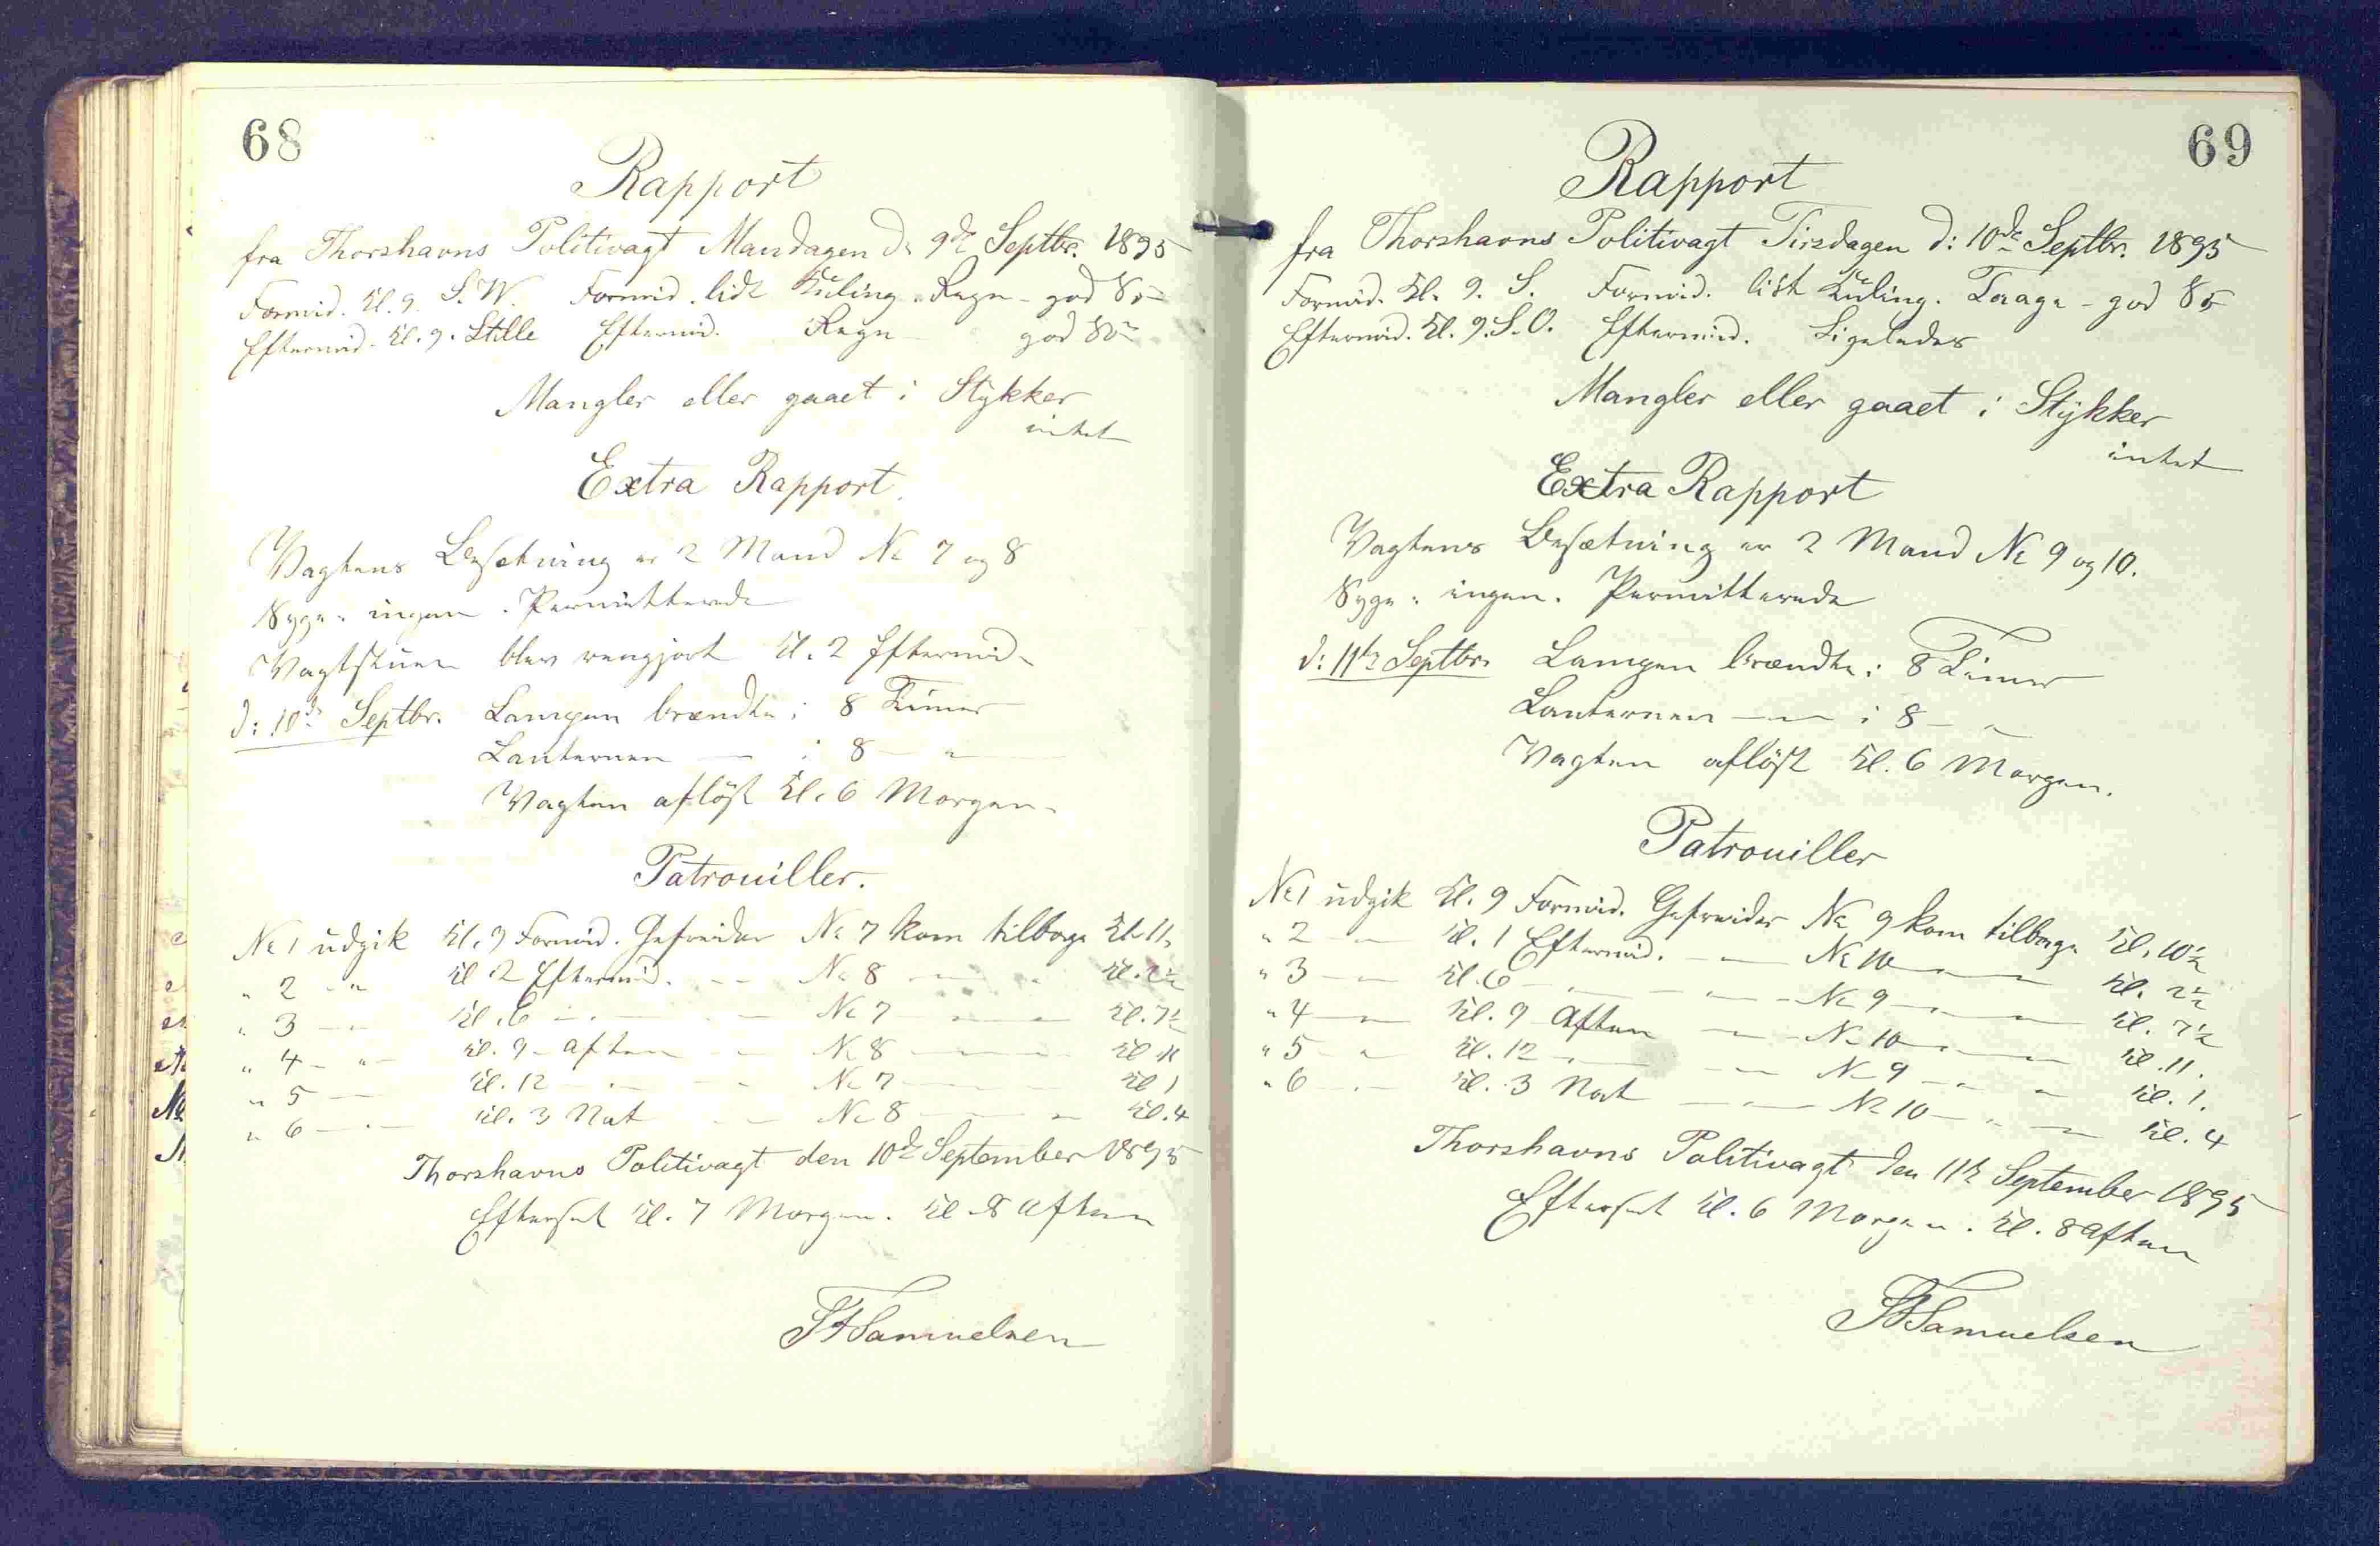 68
Rapport
fra Thorshavns Politivagt Mandagen d: 9de Septbr. 1895
Formid. Kl. 9. S.W. Formid. lidt Kuling. Regn - god Sø
Eftermid. Kl. 9. Stille Eftermid. Regn god Sø
Mangler eller gaaet i Stykker
intet
Extra Rapport.
Vagtens Besætning er 2 Mand No 7 og 8
Syge: ingen. Permitterede
Vagtstuen blev rengjort Kl. 2 Eftermid.
d: 10de Septbr. Lampen brændte i 8 Timer
Lanternen — i 8 — "
Vagten afløst Kl. 6 Morgen.
Patrouiller.
No 1 udgik Kl. 9 Formid. Gefreider No 7 kom tilbage Kl. 11.
" 2 - " Kl. 2 Eftermid. - - No 8 - - Kl. 2½
" 3 - - Kl. 6 - - - - No 7 - - Kl. 7½
" 4 - " - Kl. 9 - Aften - No 8 - - Kl. 11
" 5 - Kl. 12 - - - No 7 - Kl. 1
" 6 - - Kl. 3 Nat - - No 8 - - Kl. 4
Thorshavns Politivagt den 10de September 1895
Efterset Kl. 7 Morgen. Kl. 8 Aften
Samuelsen
69
Rapport
fra Thorshavns Politivagt Tirsdagen d: 10de Septbr. 1895
Formid. Kl. 9. S. Formid. lidt Kuling. Taage - god Sø
Eftermid. Kl. 9. S.O. Eftermid. Ligeledes
Mangler eller gaaet i Stykker
intet
Extra Rapport
Vagtens Besætning er 2 Mand No 9 og 10.
Syge: ingen. Permitterede
d: 11te Septbr. Lampen brændte i 8 Timer
Lanternen — i 8 - "
Vagten afløst Kl. 6 Morgen.
Patrouiller
No 1 udgik Kl. 9 Formid. Gefreider No 9 kom tilbage Kl. 10½
" 2 - Kl. 1 Eftermid. - - No 10 - - Kl. 2½
" 3 - - Kl. 6 - - - - No 9 - - Kl. 7½
" 4 - Kl. 9 Aften - - No 10 - - Kl. 11.
" 5 - " Kl. 12 - - - No 9 - - Kl. 1.
" 6 - - Kl. 3 Nat - - No 10 - - Kl. 4
Thorshavns Politivagt den 11te September 1895
Efterset Kl. 6 Morgen. Kl. 8 Aften
Samuelsen